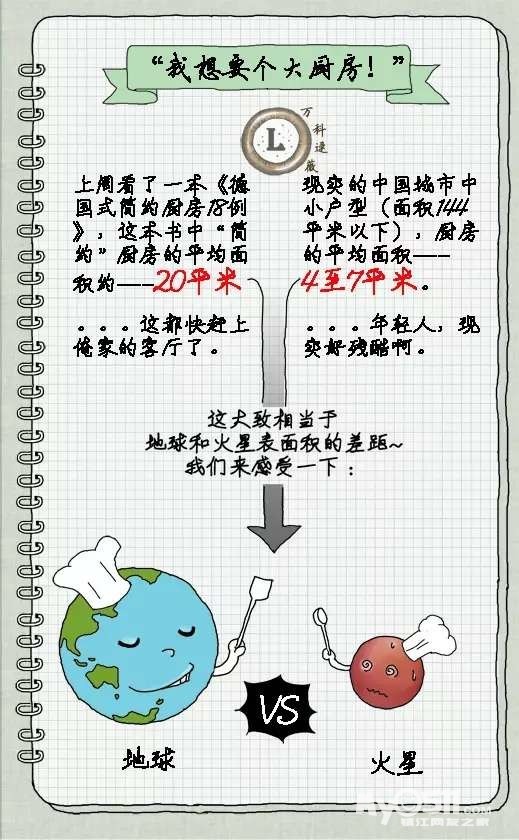 “我想要个大厨房！”
万科速藏
L
上周看了一本《德
国式简约厨房18例
》，这本书中“简
约”厨房的平均面
积约——20平米
。。。这都快赶上
俺家的客厅了。
现实的中国城市中
小户型（面积144
平米以下），厨房
的平均面积——
4至7平米。
。。。年轻人，现
实好残酷啊。
这大致相当于
地球和火星表面积的差距~
我们来感受一下：
VS
地球
火星